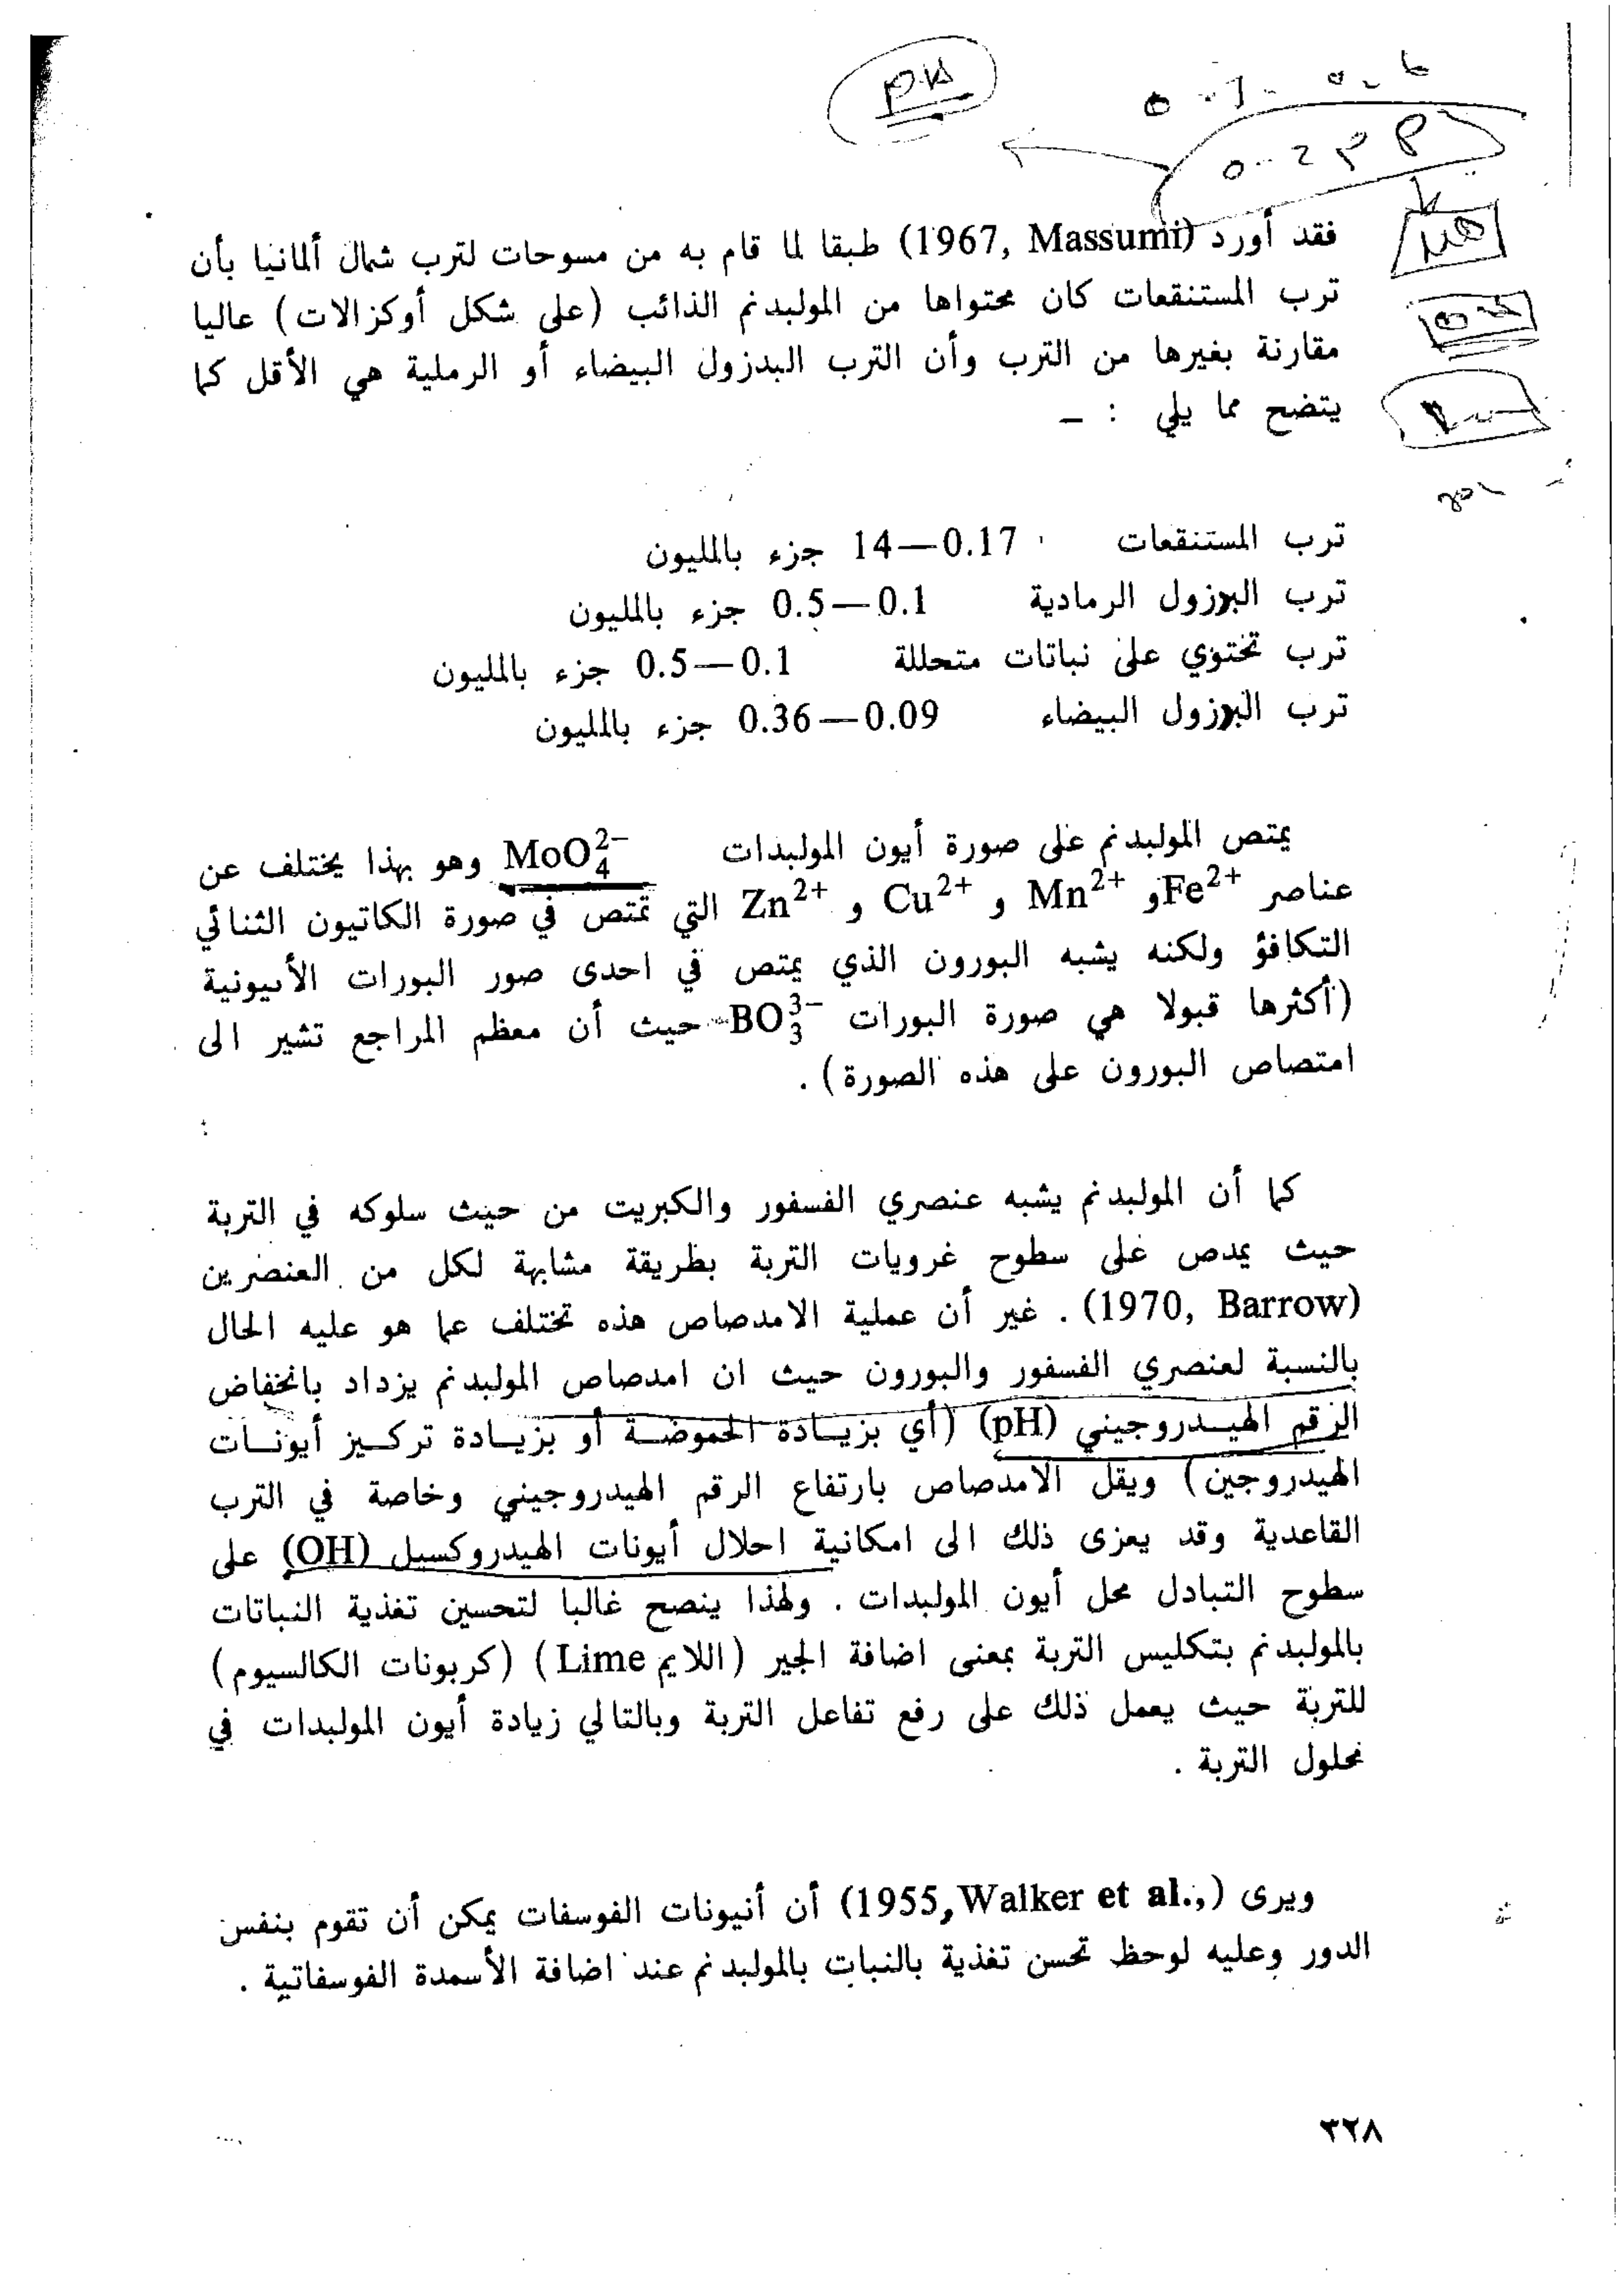 pH
فقد أورد (1967, Massumi) طبقا لما قام به من مسوحات لترب شمال ألمانيا بأن
ترب المستنقعات كان محتواها من المولبدنم الذائب (على شكل أوكزالات) عاليا
مقارنة بغيرها من الترب وأن الترب البدزول البيضاء أو الرملية هي الأقل كما
يتضح مما يلي : ــ
ترب المستنقعات 0.17—14 جزء بالمليون
ترب البرزول الرمادية 0.1—0.5 جزء بالمليون
ترب تحتوي على نباتات متحللة 0.1—0.5 جزء بالمليون
ترب البرزول البيضاء 0.09—0.36 جزء بالمليون
يمتص المولبدنم على صورة أيون المولبدات MoO₄²⁻ وهو بهذا يختلف عن
عناصر Fe²⁺ و Mn²⁺ و Cu²⁺ و Zn²⁺ التي تمتص في صورة الكاتيون الثنائي
التكافؤ ولكنه يشبه البورون الذي يمتص في احدى صور البورات الأنيونية
(أكثرها قبولا هي صورة البورات BO₃³⁻ حيث أن معظم المراجع تشير الى
امتصاص البورون على هذه الصورة) .
كما أن المولبدنم يشبه عنصري الفسفور والكبريت من حيث سلوكه في التربة
حيث يمدص على سطوح غرويات التربة بطريقة مشابهة لكل من العنصرين
(1970, Barrow) . غير أن عملية الامدصاص هذه تختلف عما هو عليه الحال
بالنسبة لعنصري الفسفور والبورون حيث ان امدصاص المولبدنم يزداد بانخفاض
الرقم الهيـدروجيني (pH) (أي بزيـادة الحموضـة أو بزيـادة تركـيز أيونـات
الهيدروجين) ويقل الامدصاص بارتفاع الرقم الهيدروجيني وخاصة في الترب
القاعدية وقد يعزى ذلك الى امكانية احلال أيونات الهيدروكسيل (OH) على
سطوح التبادل محل أيون المولبدات . ولهذا ينصح غالبا لتحسين تغذية النباتات
بالمولبدنم بتكليس التربة بمعنى اضافة الجير (اللايم Lime) (كربونات الكالسيوم)
للتربة حيث يعمل ذلك على رفع تفاعل التربة وبالتالي زيادة أيون المولبدات في
محلول التربة .
ويرى (1955, Walker et al.,) أن أنيونات الفوسفات يمكن أن تقوم بنفس
الدور وعليه لوحظ تحسن تغذية بالنبات بالمولبدنم عند اضافة الأسمدة الفوسفاتية .
٣٢٨